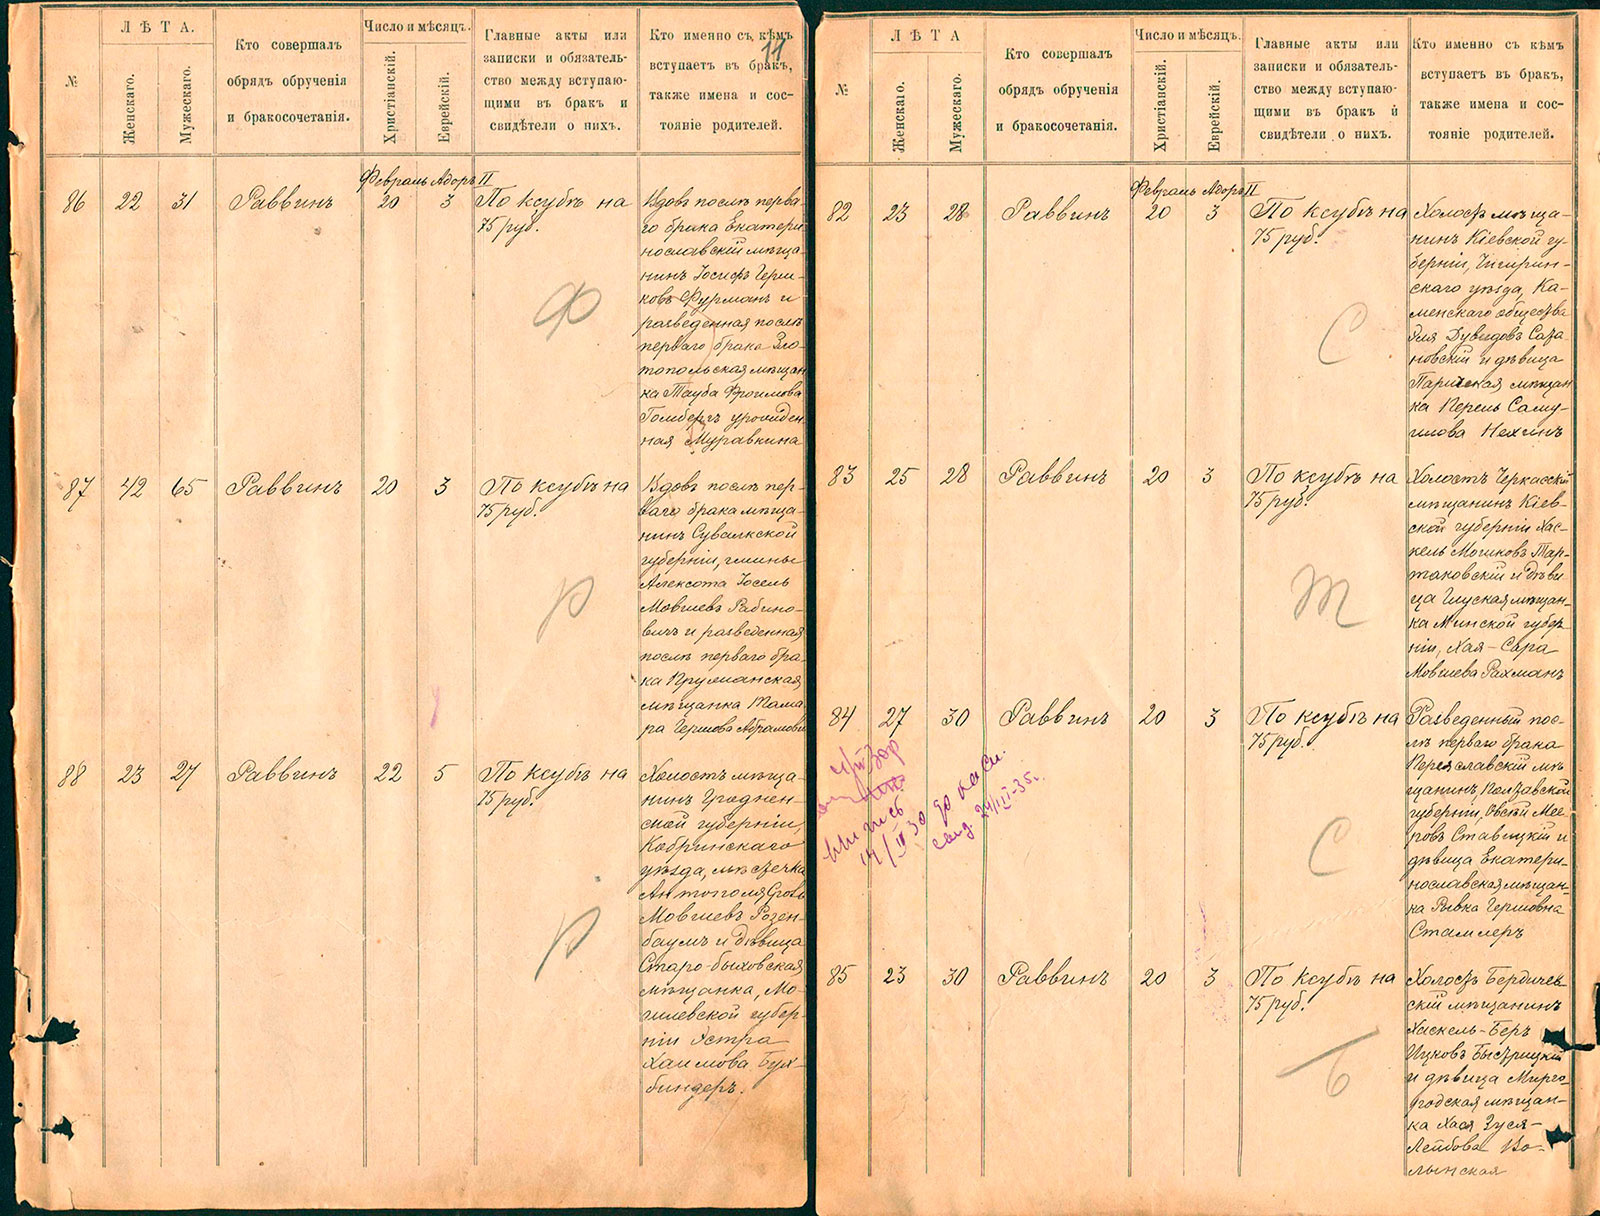 11
№
ЛѢТА.
Женскаго.
Мужескаго.
Кто совершалъ
обрядъ обрученія
и бракосочетанія.
Число и мѣсяцъ.
Христіанскій.
Еврейскій.
Главные акты или
записки и обязатель-
ство между вступаю-
щими въ бракъ и
свидѣтели о нихъ.
Кто именно съ кѣмъ
вступаетъ въ бракъ,
также имена и сос-
тояніе родителей.
Февраль Адоръ II
86 22 31 Раввинъ 20 3 По ксубѣ на
75 руб.
Вдовъ послѣ перва-
го брака Екатери-
нославскій мѣща-
нинъ Іосифъ Герш-
ковъ Фурманъ и
разведенная послѣ
перваго брака Зло-
топольская мѣщан
ка Тауба Фроимова
Гомбергъ урожден-
ная Муравкина
Ф
87 42 65 Раввинъ 20 3 По ксубѣ на
75 руб.
Вдовъ послѣ пер-
ваго брака мѣща-
нинъ Сувалкской
губерніи, гмины
Алексота Іосель
Мовшевъ Рабино-
вичъ и разведенная
послѣ перваго бра-
ка Пружанская
мѣщанка Тама-
ра Гершова Абрамовичъ
Р
88 23 27 Раввинъ 22 5 По ксубѣ на
75 руб.
Холостъ мѣща-
нинъ Гроднен-
ской губерніи,
Кобринскаго
уѣзда, мѣстечка
Антополя
Мовшевъ Розен-
баумъ и дѣвица
Старо-быховская
мѣщанка, Мо-
гилевской губер-
ніи Эстра
Хаимова Бух-
биндеръ.
Р
№
ЛѢТА
Женскаго.
Мужескаго.
Кто совершалъ
обрядъ обрученія
и бракосочетанія.
Число и мѣсяцъ.
Христіанскій.
Еврейскій.
Главные акты или
записки и обязатель-
ство между вступаю-
щими въ бракъ и
свидѣтели о нихъ.
Кто именно съ кѣмъ
вступаетъ въ бракъ,
также имена и сос-
тояніе родителей.
Февраль Адоръ II
82 23 28 Раввинъ 20 3 По ксубѣ на
75 руб.
Холостъ мѣща-
нинъ Кіевской гу-
берніи, Чигирин-
скаго уѣзда, Ка-
менскаго общества
Дувидовъ Сата-
новскій и дѣвица
Паричская мѣщан
ка Перель Саму-
илова Нехинъ
С
83 25 28 Раввинъ 20 3 По ксубѣ на
75 руб.
Холостъ Черкасскій
мѣщанинъ Кіев-
ской губерніи Хас-
кель Мошковъ Тар-
таковскій и дѣви
ца Глуская мѣщан-
ка Минской губер-
ніи, Хая-Сара
Мовшева Рахманъ
Т
84 27 30 Раввинъ 20 3 По ксубѣ на
75 руб.
Разведенный пос-
лѣ перваго брака
Переяславскій мѣ
щанинъ, Полтавской
губерніи, Овсій Мее-
ровъ Ставицкій и
дѣвица Екатери-
нославская мѣщан-
ка Рывка Гершовна
Стамлеръ
С
85 23 30 Раввинъ 20 3 По ксубѣ на
75 руб.
Холостъ Бердичев
скій мѣщанинъ
Хаскель-Беръ
Ицковъ Быстрицкій
и дѣвица Мирго-
родская мѣщан-
ка Хася Зуся-
Лейбова Во-
лынская
Б